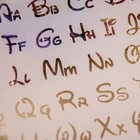 Aa Bb Cc
Ff Gg Hh Ii
Ll Mm Nn
Qq Rr Ss
Ww Xx